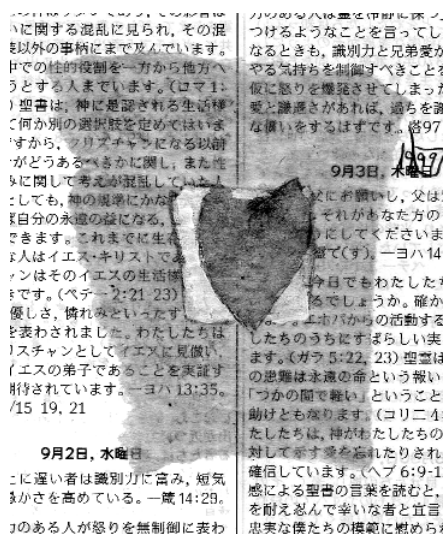 いに関する混乱に見られ，その混
以外の事柄にまで及んでいます。
中での性的役割を一方から他方へ
うとする人までいます。(ロマ1:
)聖書は，神に是認される生活様
て何か別の選択肢を定めてはいま
ですから，クリスチャンになる以前
がどうあるべきかに関し，また性
みに関して考えが混乱していた人
としても，神の規準にかな
ば自分の永遠の益になる，
できます。これまでに生
な人はイエス・キリストで
ャンはそのイエスの生活様
きです。(ペテ一 2:21-23)
優しさ，憐れみといったす
を表わされました。わたしたちは
リスチャンとしてイエスに見倣い，
イエスの弟子であることを実証す
期待されています。―ヨハ13:35。
/15 19, 21
9月2日，水曜日
に遅い者は識別力に富み，短気
愚かさを高めている。―箴14:29。
力のある人が怒りを無制御に表わ
つけるようなことを言ってし
なるときも，識別力と兄弟愛が
やる気持ちを制御すべきことを
仮に怒りを爆発させてしまった
愛と謙遜さがあれば，過ちを
な償いをするはずです。塔97
1997
9月3日，木曜日
にお願いし，父は
それがあなた方の
にしてくださいま
です)。―ヨハ14
今日でもわたしたち
るでしょうか。確か
エホバからの活動する
したちのうちにすばらしい実
ます。(ガラ5:22, 23)聖霊は
の患難は永遠の命という報い
「つかの間で軽い」ということ
助けともなります。(コリ二4:
たしたちは，神がわたしたちの
対して示す愛を忘れたりされ
確信しています。(ヘブ6:9-1
感による聖書の言葉を読むと，
を耐え忍んで幸いな者と宣言
忠実な僕たちの模範に慰められ